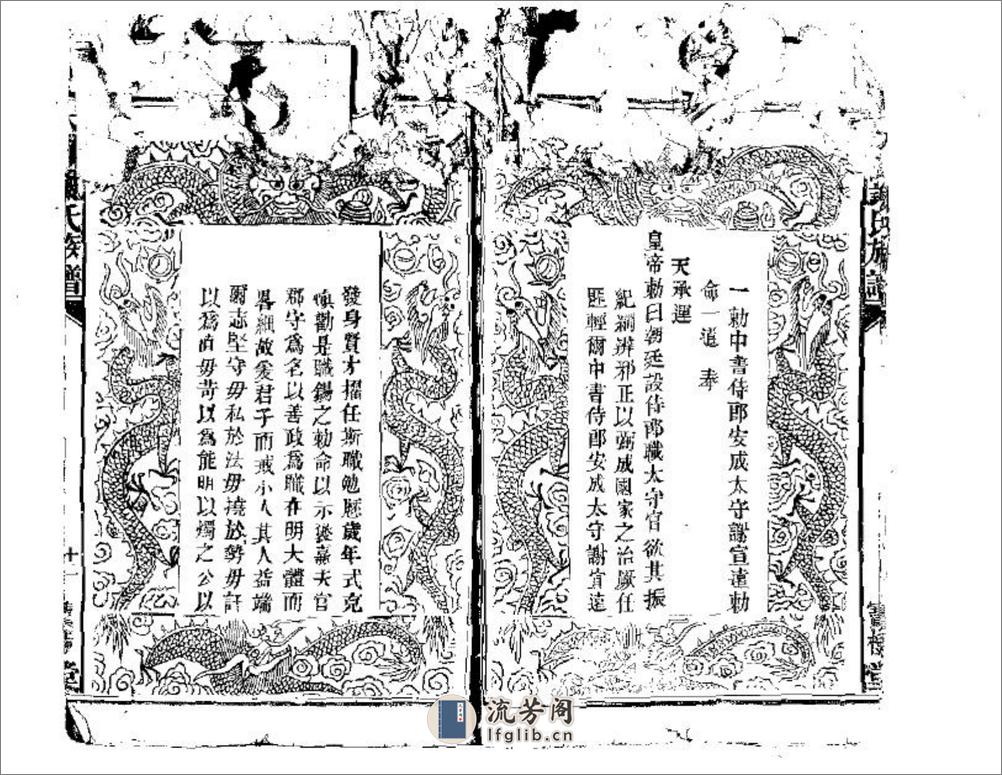 謝氏族譜
寶樹堂
一勅中書侍郎安成太守謝宣遠勅
命一道 奉
天承運
皇帝勅曰朝廷設侍郎職太守官欲其振
紀綱辨邪正以弼成國家之治厥任
匪輕爾中書侍郎安成太守謝宣遠
發身賢才擢任斯職勉歷歲年式克
慎勸是職錫之勅命以示褒嘉夫官
郡守爲名以善政爲職在明大體而
畧細故愛君子而戒小人其人益端
爾志堅守毋私於法毋撓於勢毋訐
以爲直毋苛以爲能明以燭之公以
氏族譜
十一
堂
流芳阁
lfglib.cn